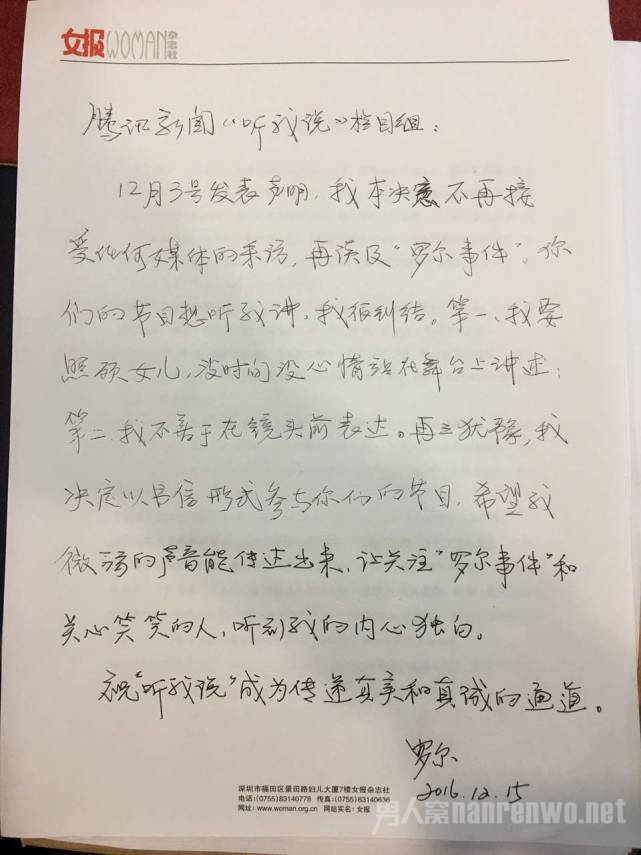 女报WOMAN杂志社
腾讯新闻《听我说》栏目组：
12月3号发表声明，我本决意不再接
受任何媒体的采访，再谈及“罗尔事件”。你
们的节目想听我讲，我很纠结。第一、我要
照顾女儿，没时间没心情站在舞台上讲述；
第二、我不善于在镜头前表达。再三犹豫，我
决定以书信形式参与你们的节目，希望我
微弱的声音能传达出来，让关注“罗尔事件”和
关心笑笑的人，听到我的内心独白。
祝“听我说”成为传递真美和真诚的通道。
罗尔
2016.12.15
深圳市福田区景田路妇儿大厦7楼女报杂志社
电话:(0755)83140778 传真:(0755)83140636
网址:www.woman.org.cn 网站实名:女报
男人窝nanrenwo.net